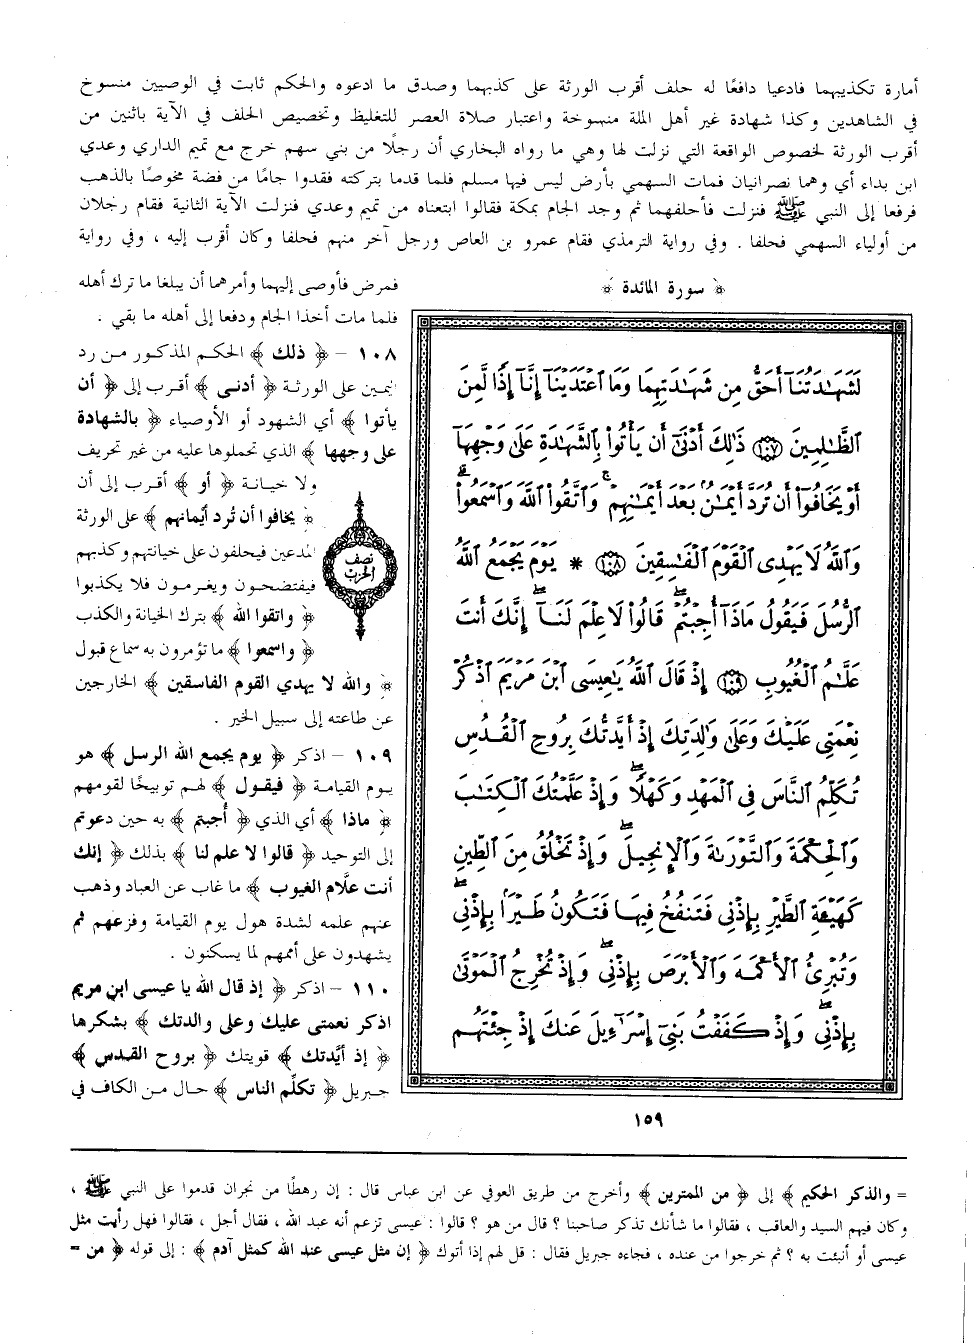 أمارة تكذيبهما فادعيا دافعًا له حلف أقرب الورثة على كذبهما وصدق ما ادعوه والحكم ثابت في الوصيين منسوخ
في الشاهدين وكذا شهادة غير أهل الملة منسوخة واعتبار صلاة العصر للتغليظ وتخصيص الحلف في الآية باثنين من
أقرب الورثة لخصوص الواقعة التي نزلت لها وهي ما رواه البخاري أن رجلًا من بني سهم خرج مع تميم الداري وعدي
ابن بداء أي وهما نصرانيان فمات السهمي بأرض ليس فيها مسلم فلما قدما بتركته فقدوا جامًا من فضة مخوصًا بالذهب
فرفعا إلى النبي ﷺ فنزلت فأحلفهما ثم وجد الجام بمكة فقالوا ابتعناه من تميم وعدي فنزلت الآية الثانية فقام رجلان
من أولياء السهمي فحلفا . وفي رواية الترمذي فقام عمرو بن العاص ورجل آخر منهم فحلفا وكان أقرب إليه ، وفي رواية
فمرض فأوصى إليهما وأمرهما أن يبلغا ما ترك أهله
فلما مات أخذا الجام ودفعا إلى أهله ما بقي .
١٠٨ – ﴿ ذلك ﴾ الحكم المذكور من رد
اليمين على الورثة ﴿ أدنى ﴾ أقرب إلى ﴿ أن
يأتوا ﴾ أي الشهود أو الأوصياء ﴿ بالشهادة
على وجهها ﴾ الذي تحملوها عليه من غير تحريف
ولا خيانة ﴿ أو ﴾ أقرب إلى أن
﴿ يخافوا أن تُرد أيمانهم ﴾ على الورثة
المدعين فيحلفون على خيانتهم وكذبهم
فيفتضحون ويغرمون فلا يكذبوا
﴿ واتقوا الله ﴾ بترك الخيانة والكذب
﴿ واسمعوا ﴾ ما تؤمرون به سماع قبول
﴿ والله لا يهدي القوم الفاسقين ﴾ الخارجين
عن طاعته إلى سبيل الخير .
١٠٩ – اذكر ﴿ يوم يجمع الله الرسل ﴾ هو
يوم القيامة ﴿ فيقول ﴾ لهم توبيخًا لقومهم
﴿ ماذا ﴾ أي الذي ﴿ أُجبتم ﴾ به حين دعوتم
إلى التوحيد ﴿ قالوا لا علم لنا ﴾ بذلك ﴿ إنك
أنت علَّام الغيوب ﴾ ما غاب عن العباد وذهب
عنهم علمه لشدة هول يوم القيامة وفزعهم ثم
يشهدون على أممهم لما يسكنون .
١١٠ – اذكر ﴿ إذ قال الله يا عيسى ابن مريم
اذكر نعمتي عليك وعلى والدتك ﴾ بشكرها
﴿ إذ أيَّدتك ﴾ قويتك ﴿ بروح القدس ﴾
جبريل ﴿ تكلِّم الناس ﴾ حال من الكاف في
نصف
الحزب
﴿ سورة المائدة ﴾
لَشَهَٰدَتُنَآ أَحَقُّ مِن شَهَٰدَتِهِمَا وَمَا ٱعْتَدَيْنَآ إِنَّآ إِذًا لَّمِنَ
ٱلظَّٰلِمِينَ ١٠٧ ذَٰلِكَ أَدْنَىٰٓ أَن يَأْتُوا۟ بِٱلشَّهَٰدَةِ عَلَىٰ وَجْهِهَآ
أَوْ يَخَافُوٓا۟ أَن تُرَدَّ أَيْمَٰنٌۢ بَعْدَ أَيْمَٰنِهِمْ ۚ وَٱتَّقُوا۟ ٱللَّهَ وَٱسْمَعُوا۟ ۗ
وَٱللَّهُ لَا يَهْدِى ٱلْقَوْمَ ٱلْفَٰسِقِينَ ١٠٨ * يَوْمَ يَجْمَعُ ٱللَّهُ
ٱلرُّسُلَ فَيَقُولُ مَاذَآ أُجِبْتُمْ ۖ قَالُوا۟ لَا عِلْمَ لَنَآ ۖ إِنَّكَ أَنتَ
عَلَّٰمُ ٱلْغُيُوبِ ١٠٩ إِذْ قَالَ ٱللَّهُ يَٰعِيسَى ٱبْنَ مَرْيَمَ ٱذْكُرْ
نِعْمَتِى عَلَيْكَ وَعَلَىٰ وَٰلِدَتِكَ إِذْ أَيَّدتُّكَ بِرُوحِ ٱلْقُدُسِ
تُكَلِّمُ ٱلنَّاسَ فِى ٱلْمَهْدِ وَكَهْلًا ۖ وَإِذْ عَلَّمْتُكَ ٱلْكِتَٰبَ
وَٱلْحِكْمَةَ وَٱلتَّوْرَىٰةَ وَٱلْإِنجِيلَ ۖ وَإِذْ تَخْلُقُ مِنَ ٱلطِّينِ
كَهَيْـَٔةِ ٱلطَّيْرِ بِإِذْنِى فَتَنفُخُ فِيهَا فَتَكُونُ طَيْرًۢا بِإِذْنِى ۖ
وَتُبْرِئُ ٱلْأَكْمَهَ وَٱلْأَبْرَصَ بِإِذْنِى ۖ وَإِذْ تُخْرِجُ ٱلْمَوْتَىٰ
بِإِذْنِى ۖ وَإِذْ كَفَفْتُ بَنِىٓ إِسْرَٰٓءِيلَ عَنكَ إِذْ جِئْتَهُم
١٥٩
= والذكر الحكيم ﴾ إلى ﴿ من الممترين ﴾ وأخرج من طريق العوفي عن ابن عباس قال : إن رهطًا من نجران قدموا على النبي ﷺ ،
وكان فيهم السيد والعاقب ، فقالوا ما شأنك تذكر صاحبنا ؟ قال من هو ؟ قالوا : عيسى تزعم أنه عبد الله ، فقال أجل ، فقالوا فهل رأيت مثل
عيسى أو أنبئت به ؟ ثم خرجوا من عنده ، فجاءه جبريل فقال : قل لهم إذا أتوك ﴿ إن مثل عيسى عند الله كمثل آدم ﴾ : إلى قوله ﴿ من =